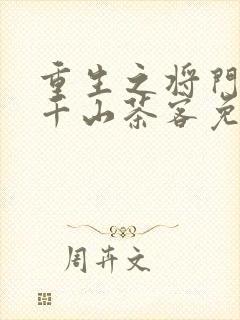 重生之将门
千山茶客免
周卉文